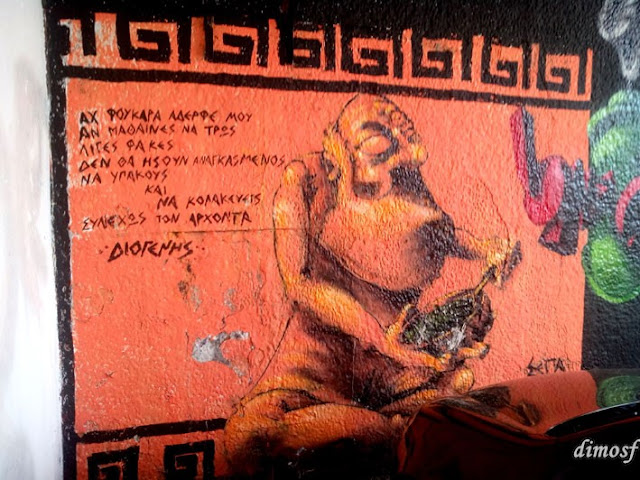 ΑΧ ΦΟΥΚΑΡΑ ΑΔΕΡΦΕ ΜΟΥ
ΑΝ ΜΑΘΑΙΝΕΣ ΝΑ ΤΡΩΣ
ΛΙΓΕΣ ΦΑΚΕΣ
ΔΕΝ ΘΑ ΗΣΟΥΝ ΑΝΑΓΚΑΣΜΕΝΟΣ
ΝΑ ΥΠΑΚΟΥΣ
ΚΑΙ
ΝΑ ΚΟΛΑΚΕΥΕΙΣ
ΣΥΝΕΧΩΣ ΤΟΝ ΑΡΧΟΝΤΑ
·ΔΙΟΓΕΝΗΣ·
dimosf